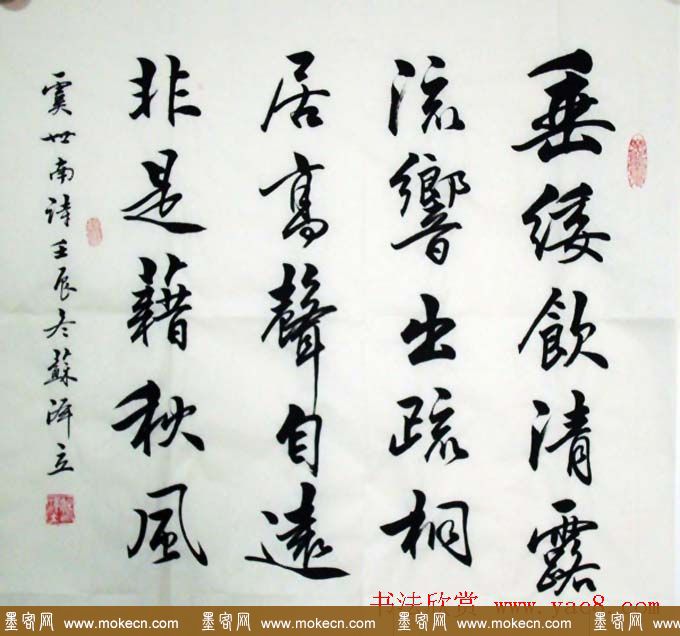 垂緌飲清露
流響出疏桐
居高聲自遠
非是藉秋風
虞世南詩壬辰冬蘇澤立
书法欣赏 www.yac8.com
墨客网 www.mokecn.com 墨客网 www.mokecn.com 墨客网 www.mokecn.com 墨客网 www.mokecn.com